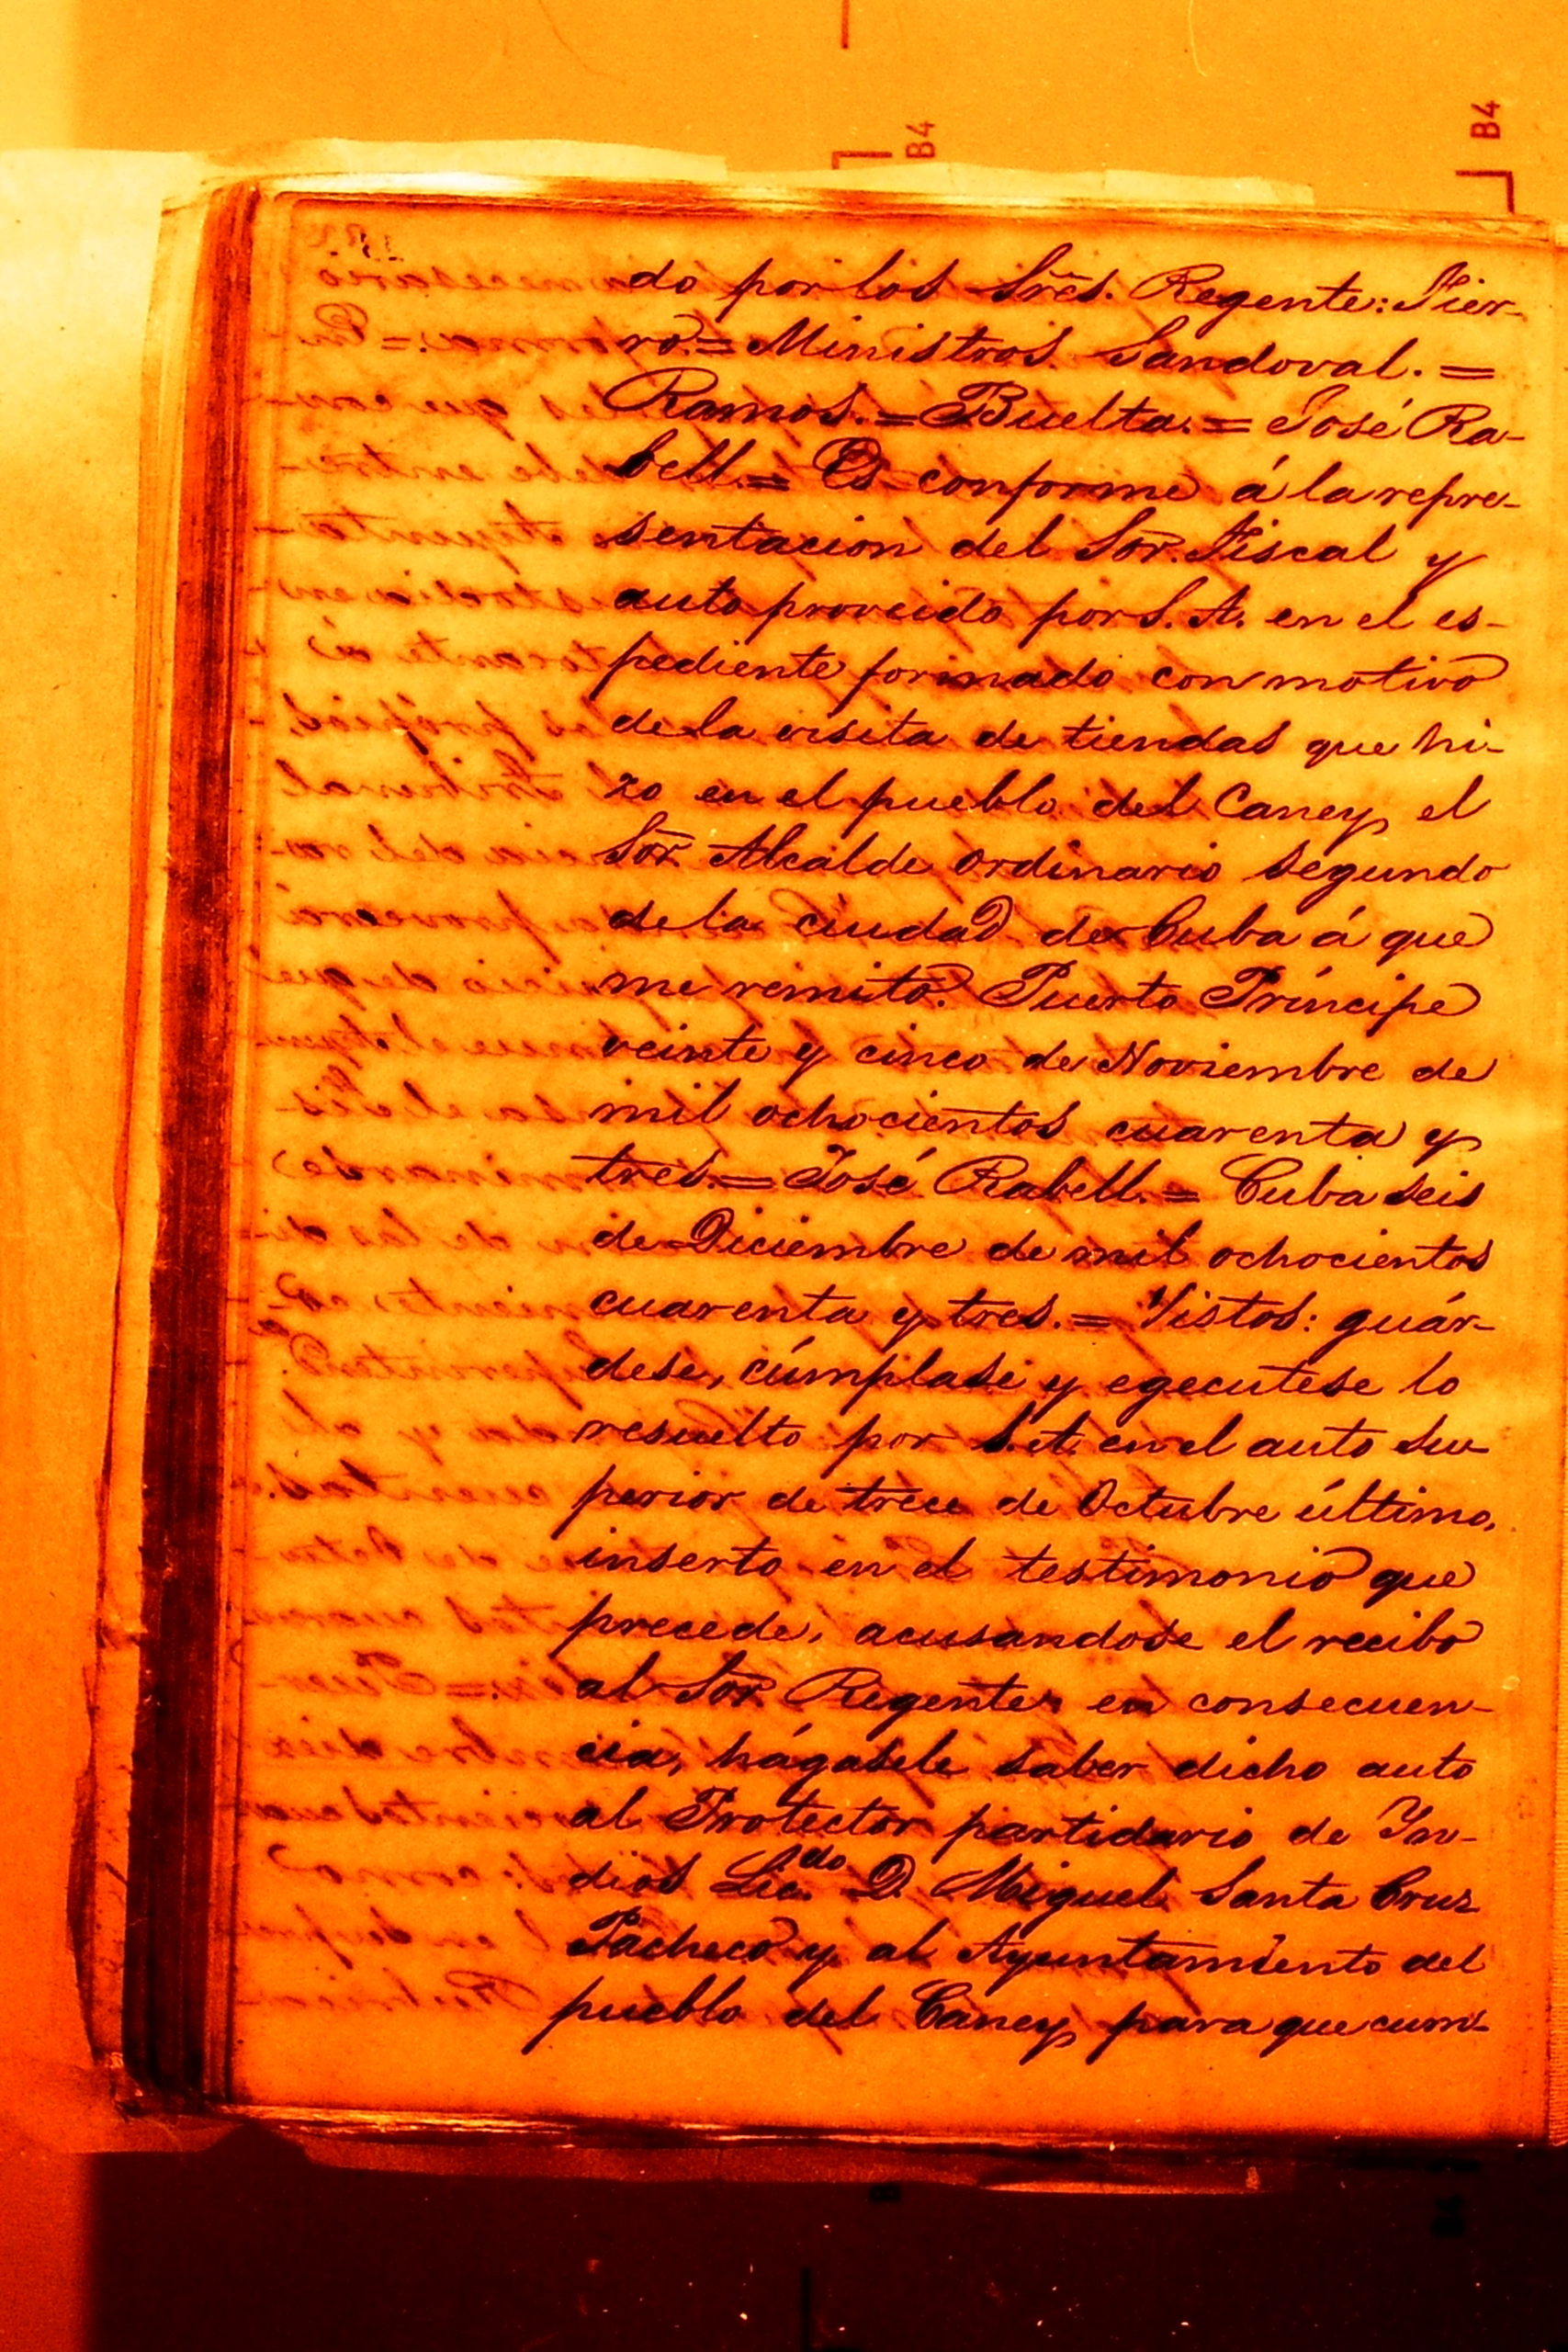 B4
B4
do por los Sres. Regente: Fier-
ro.=Ministros. Sandoval.=
Ramos.=Buelta.=José Ra-
bell.=Es conforme á la repre-
sentacion del Sor. Fiscal y
auto proveido por S. A. en el es-
pediente formado con motivo
de la visita de tiendas que hi-
zo en el pueblo del Caney el
Sor. Alcalde ordinario segundo
de la ciudad de Cuba á que
me remito. Puerto Príncipe
veinte y cinco de Noviembre de
mil ochocientos cuarenta y
tres.=José Rabell.=Cuba seis
de Diciembre de mil ochocientos
cuarenta y tres.=Vistos: guár-
dese, cúmplase y egecutese lo
resuelto por S. A. en el auto su-
perior de trece de Octubre último,
inserto en el testimonio que
precede, acusandose el recibo
al Sor. Regente en consecuen-
cia, hágasele saber dicho auto
al Protector partidario de Yn-
dios Lic.do D. Miguel Santa Cruz
Pacheco y al Ayuntamiento del
pueblo del Caney para que cum-